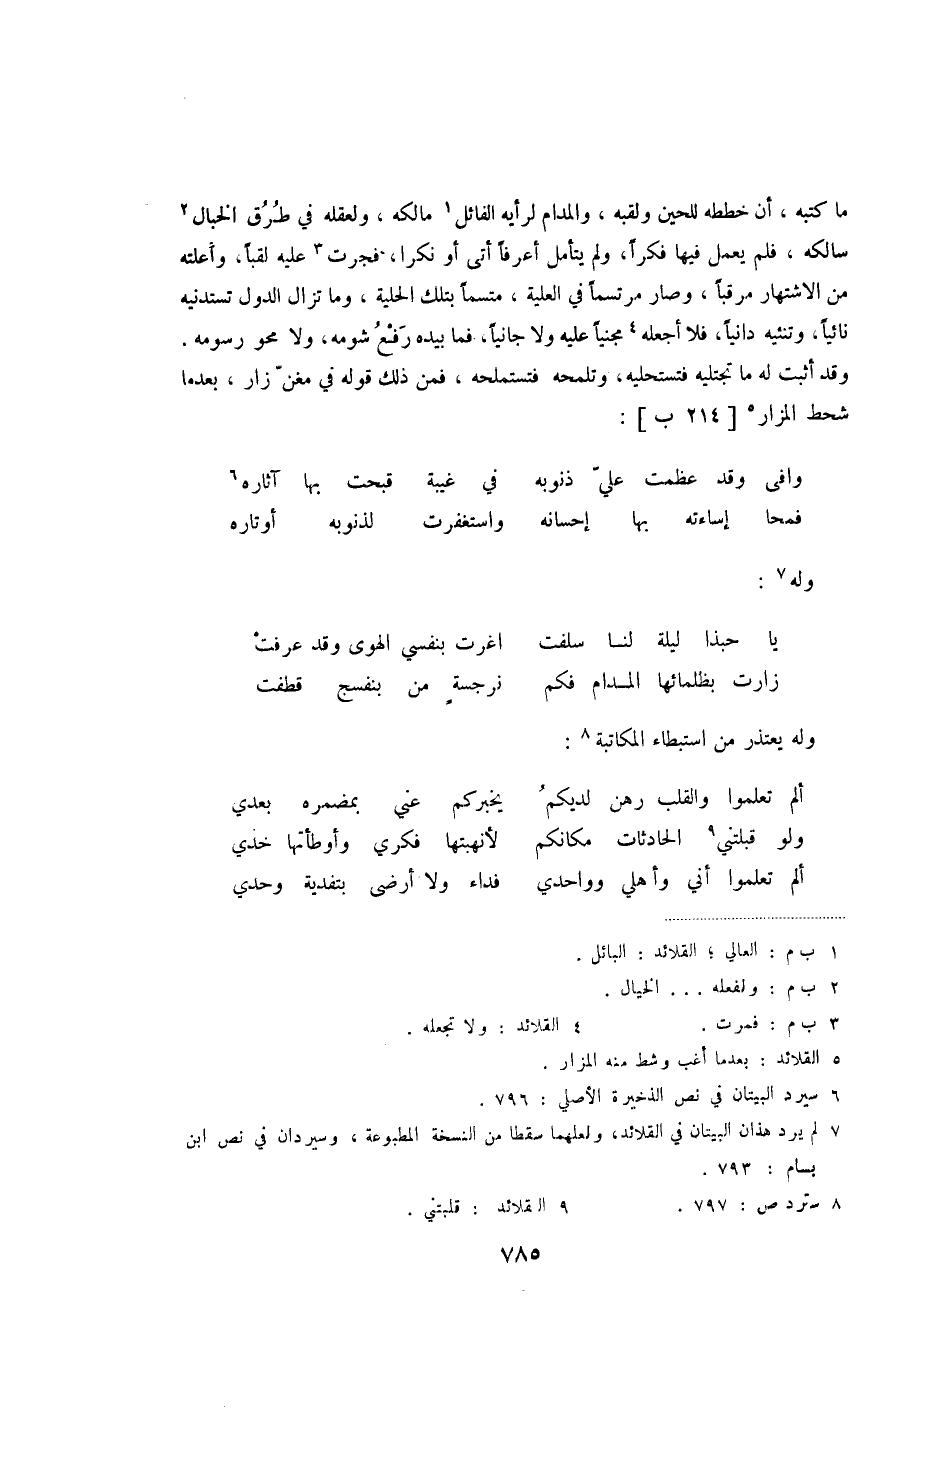 ما كتبه ، أن خططه للحين ولقبه ، والمدام لرأيه الفائل١ مالكه ، ولعقله في طُرُق الخبال٢
سالكه ، فلم يعمل فيها فكراً، ولم يتأمل أعرفاً أتى أو نكرا، فجرت٣ عليه لقباً، وأعلته
من الاشتهار مرقباً ، وصار مرتسماً في العلية ، متسماً بتلك الحلية ، وما تزال الدول تستدنيه
نائياً، وتنئيه دانياً، فلا أجعله٤ مجنياً عليه ولا جانياً، فما بيده رَفْعُ شومه، ولا محو رسومه .
وقد أثبت له ما تجتليه فتستحليه، وتلمحه فتستملحه ، فمن ذلك قوله في مغنّ زار ، بعدما
شحط المزار٥ [ ٢١٤ ب ] :
وافى وقد عظمت عليّ ذنوبه في غيبة قبحت بها آثاره٦
فمحا إساءته بها إحسانه واستغفرت لذنوبه أوتاره
وله٧ :
يا حبذا ليلة لنا سلفت اغرت بنفسي الهوى وقد عرفتْ
زارت بظلمائها المدام فكم نرجسةٍ من بنفسج قطفت
وله يعتذر من استبطاء المكاتبة٨ :
ألم تعلموا والقلب رهن لديكمُ يخبركم عني بمضمره بعدي
ولو قبلتني٩ الحادثات مكانكم لأنهبتها فكري وأوطأتها خدي
ألم تعلموا أني وأهلي وواحدي فداء ولا أرضى بتفدية وحدي
١ ب م : العالي ؛ القلائد : البائل .
٢ ب م : ولفعله ... الخيال .
٣ ب م : فمرت . ٤ القلائد : ولا تجعله .
٥ القلائد : بعدما أغب وشط منه المزار .
٦ سيرد البيتان في نص الذخيرة الأصلي : ٧٩٦ .
٧ لم يرد هذان البيتان في القلائد، ولعلهما سقطا من النسخة المطبوعة ، وسيردان في نص ابن
بسام : ٧٩٣ .
٨ سترد ص : ٧٩٧ . ٩ القلائد : قلبتني .
٧٨٥